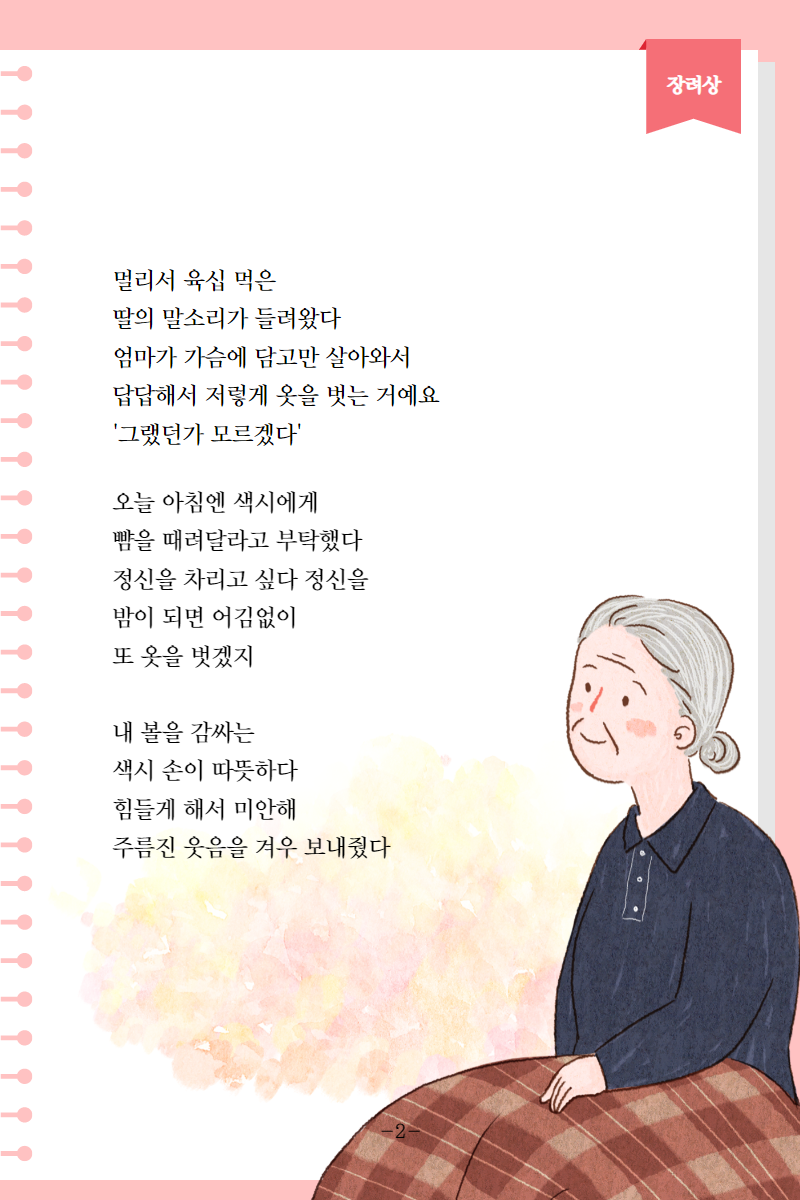 장려상
멀리서 육십 먹은
딸의 말소리가 들려왔다
엄마가 가슴에 담고만 살아와서
답답해서 저렇게 옷을 벗는 거예요
'그랬던가 모르겠다'
오늘 아침엔 색시에게
뺨을 때려달라고 부탁했다
정신을 차리고 싶다 정신을
밤이 되면 어김없이
또 옷을 벗겠지
내 볼을 감싸는
색시 손이 따뜻하다
힘들게 해서 미안해
주름진 웃음을 겨우 보내줬다
-2-